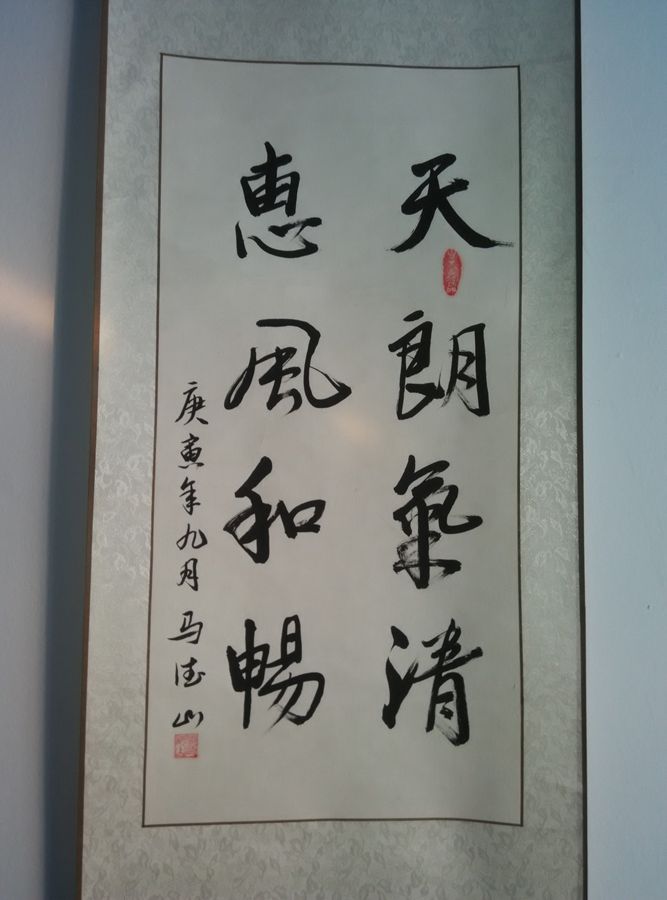 天朗氣清
惠風和暢
庚寅年九月马德山